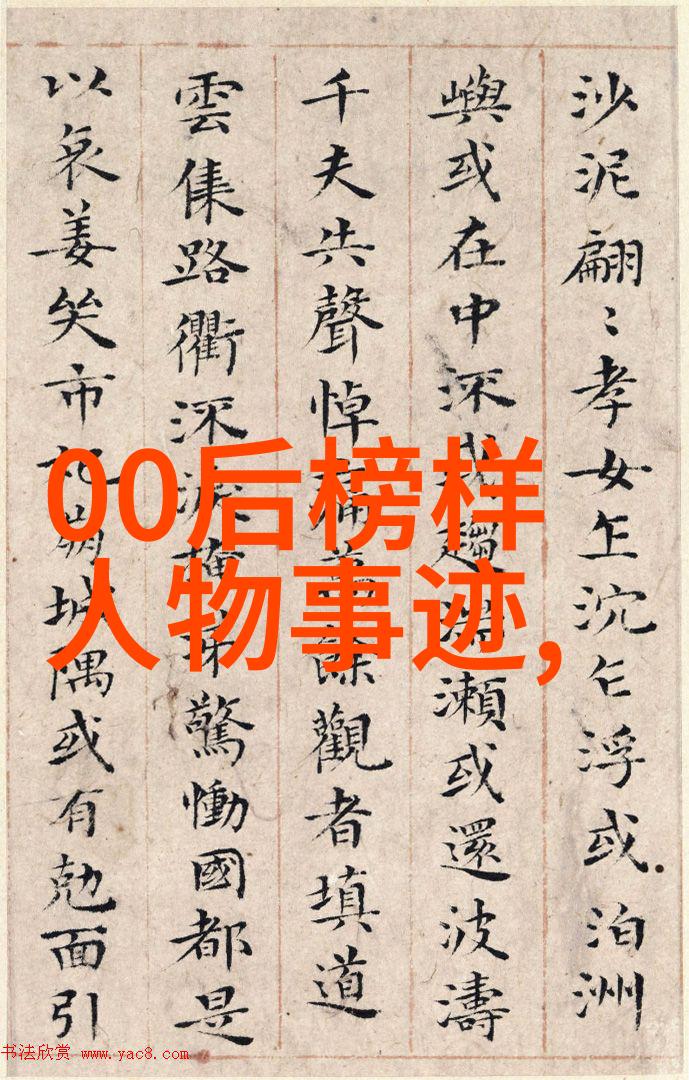 沙泥翩〻孝女乍沉乍浮或泊洲
嶼或在中深或趨湍瀨或還波濤
千夫共聲悼痛萬餘觀者填道
雲集路衢深淚掩涕驚慟國都是
以哀姜哭市杞崩城隅或有勊面引
00后榜样
人物事迹,
书法欣赏 www.yac8.com